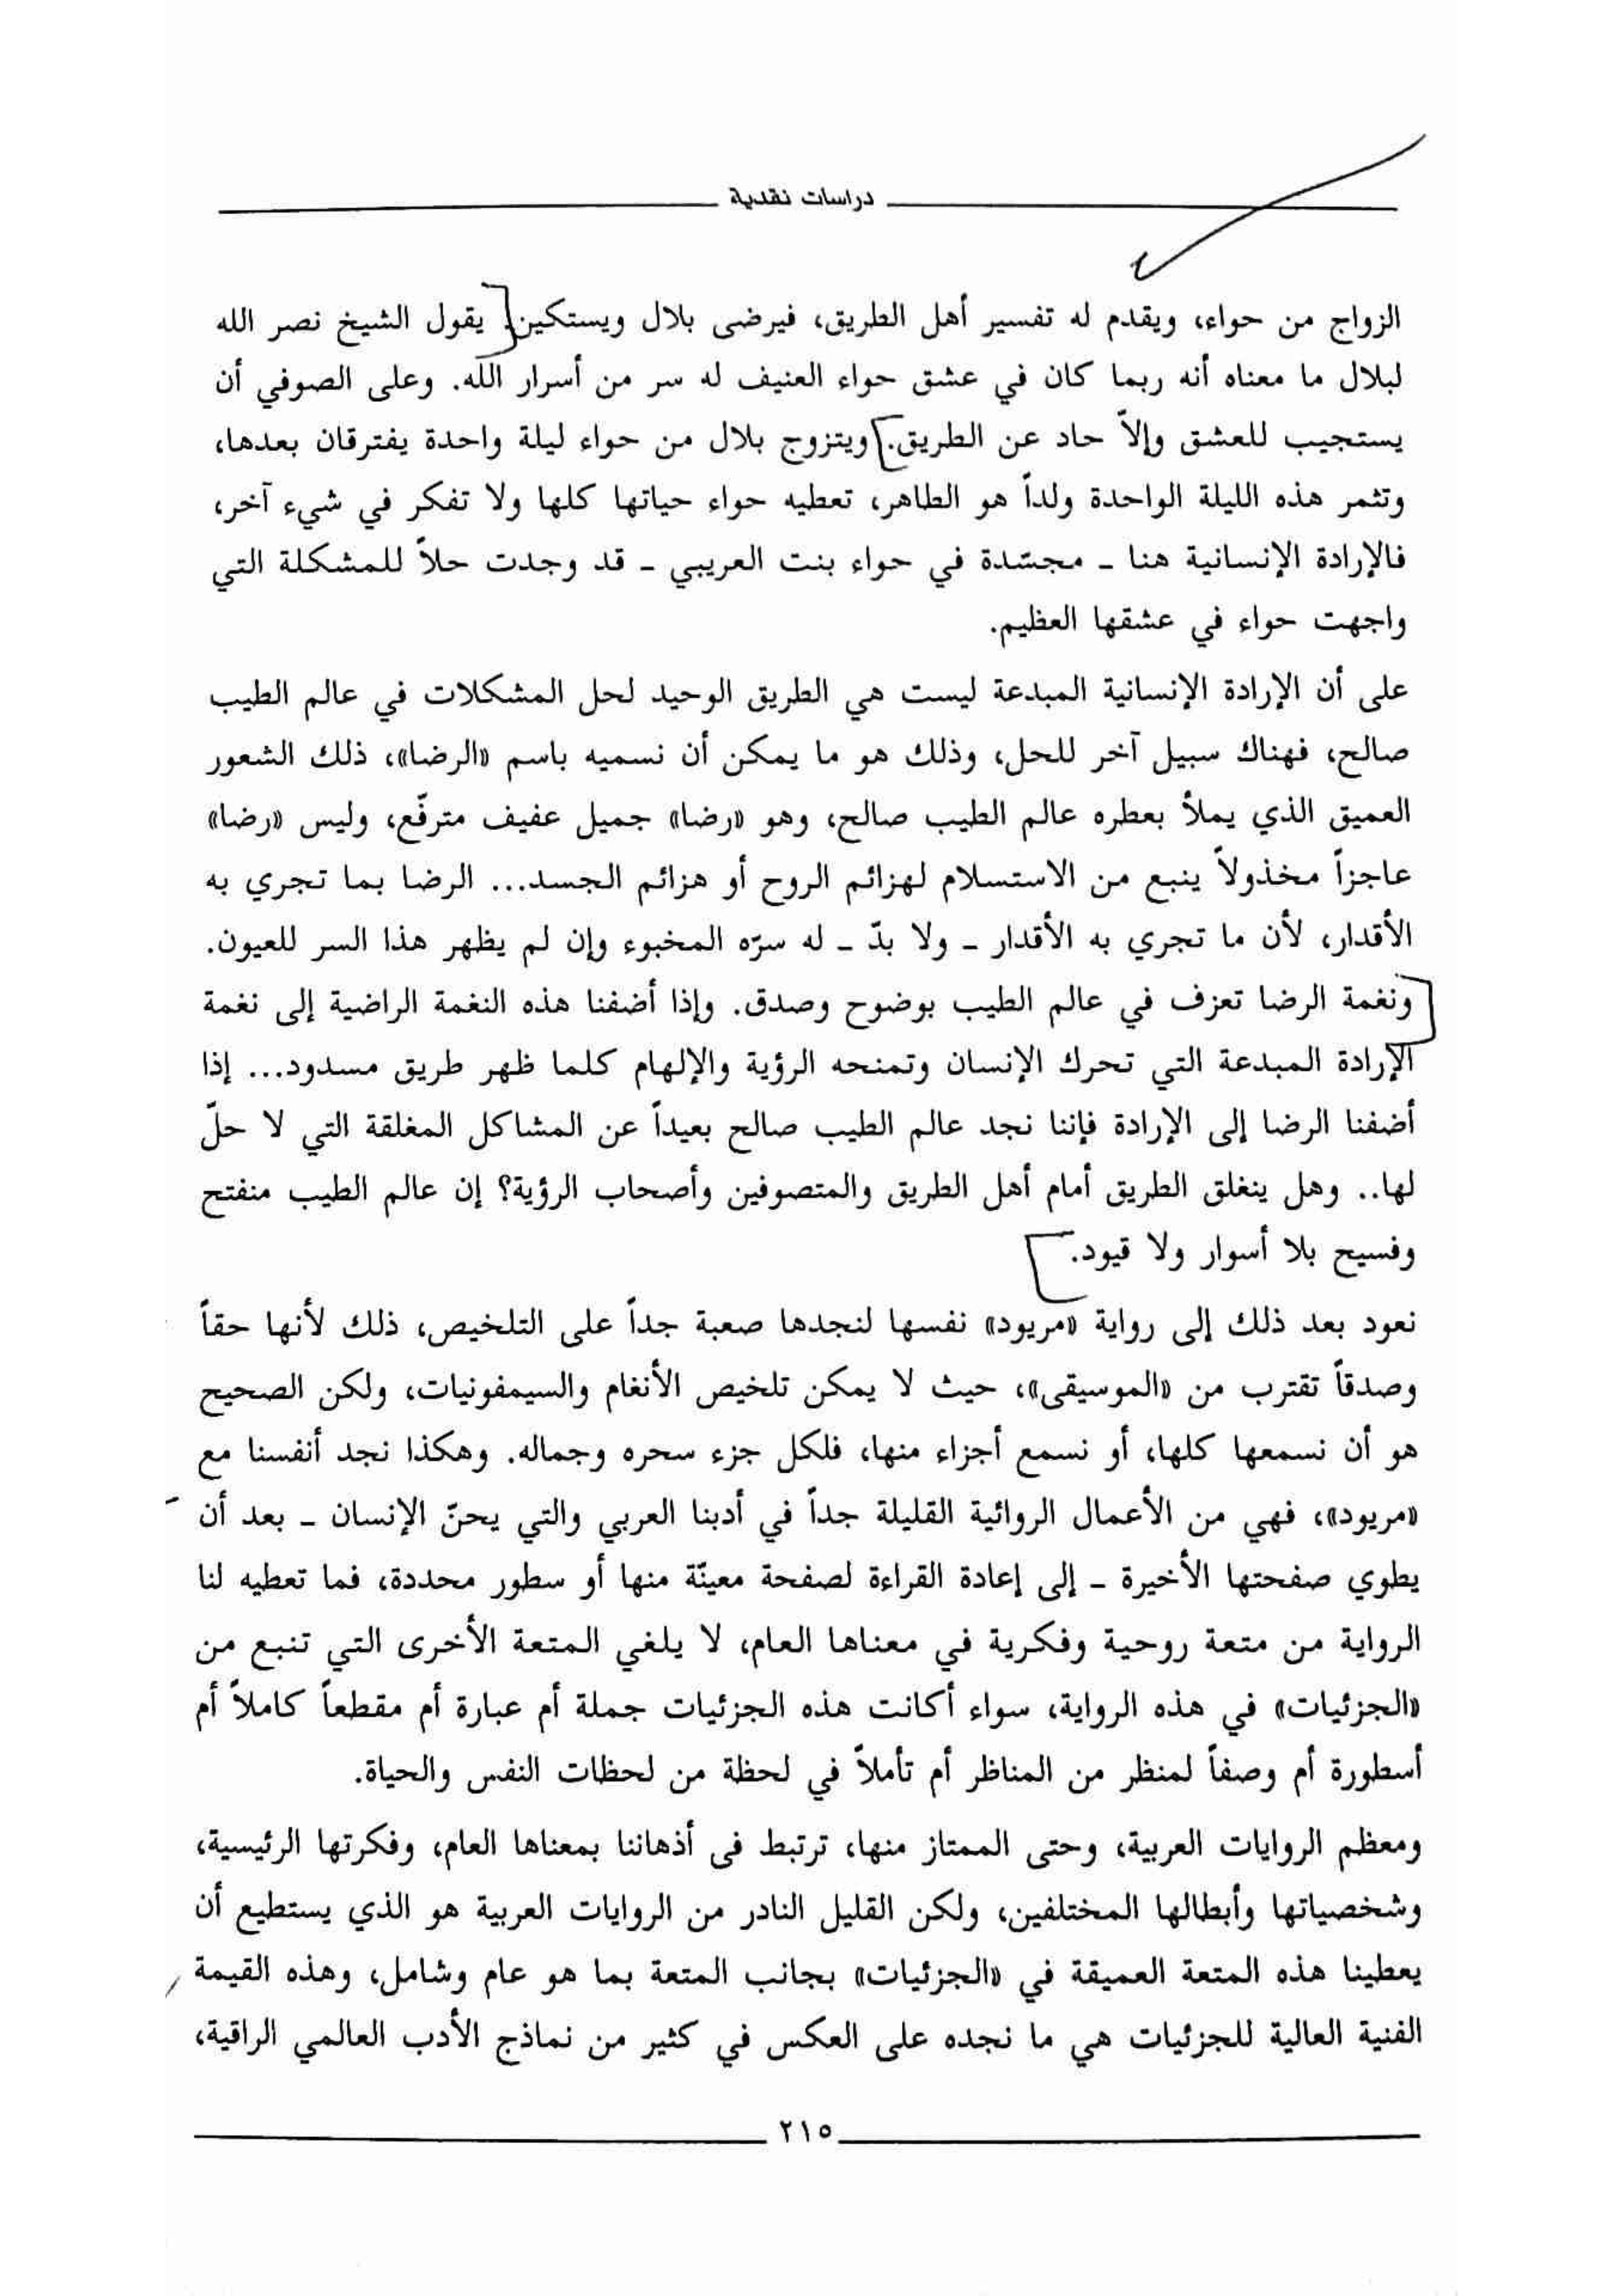 دراسات نقدية
الزواج من حواء، ويقدم له تفسير أهل الطريق، فيرضى بلال ويستكين. يقول الشيخ نصر الله
لبلال ما معناه أنه ربما كان في عشق حواء العنيف له سر من أسرار الله. وعلى الصوفي أن
يستجيب للعشق وإلاّ حاد عن الطريق. ويتزوج بلال من حواء ليلة واحدة يفترقان بعدها،
وتثمر هذه الليلة الواحدة ولداً هو الطاهر، تعطيه حواء حياتها كلها ولا تفكر في شيء آخر،
فالإرادة الإنسانية هنا - مجسّدة في حواء بنت العريبي - قد وجدت حلاً للمشكلة التي
واجهت حواء في عشقها العظيم.
على أن الإرادة الإنسانية المبدعة ليست هي الطريق الوحيد لحل المشكلات في عالم الطيب
صالح، فهناك سبيل آخر للحل، وذلك هو ما يمكن أن نسميه باسم «الرضا»، ذلك الشعور
العميق الذي يملأ بعطره عالم الطيب صالح، وهو «رضا» جميل عفيف مترفّع، وليس «رضا»
عاجزاً مخذولاً ينبع من الاستسلام لهزائم الروح أو هزائم الجسد... الرضا بما تجري به
الأقدار، لأن ما تجري به الأقدار - ولا بدّ - له سرّه المخبوء وإن لم يظهر هذا السر للعيون.
ونغمة الرضا تعزف في عالم الطيب بوضوح وصدق. وإذا أضفنا هذه النغمة الراضية إلى نغمة
الإرادة المبدعة التي تحرك الإنسان وتمنحه الرؤية والإلهام كلما ظهر طريق مسدود... إذا
أضفنا الرضا إلى الإرادة فإننا نجد عالم الطيب صالح بعيداً عن المشاكل المغلقة التي لا حلّ
لها.. وهل ينغلق الطريق أمام أهل الطريق والمتصوفين وأصحاب الرؤية؟ إن عالم الطيب منفتح
وفسيح بلا أسوار ولا قيود.
نعود بعد ذلك إلى رواية «مريود» نفسها لنجدها صعبة جداً على التلخيص، ذلك لأنها حقاً
وصدقاً تقترب من «الموسيقى»، حيث لا يمكن تلخيص الأنغام والسيمفونيات، ولكن الصحيح
هو أن نسمعها كلها، أو نسمع أجزاء منها، فلكل جزء سحره وجماله. وهكذا نجد أنفسنا مع
«مريود»، فهي من الأعمال الروائية القليلة جداً في أدبنا العربي والتي يحنّ الإنسان - بعد أن
يطوي صفحتها الأخيرة - إلى إعادة القراءة لصفحة معينّة منها أو سطور محددة، فما تعطيه لنا
الرواية من متعة روحية وفكرية في معناها العام، لا يلغي المتعة الأخرى التي تنبع من
«الجزئيات» في هذه الرواية، سواء أكانت هذه الجزئيات جملة أم عبارة أم مقطعاً كاملاً أم
أسطورة أم وصفاً لمنظر من المناظر أم تأملاً في لحظة من لحظات النفس والحياة.
ومعظم الروايات العربية، وحتى الممتاز منها، ترتبط فى أذهاننا بمعناها العام، وفكرتها الرئيسية،
وشخصياتها وأبطالها المختلفين، ولكن القليل النادر من الروايات العربية هو الذي يستطيع أن
يعطينا هذه المتعة العميقة في «الجزئيات» بجانب المتعة بما هو عام وشامل، وهذه القيمة
الفنية العالية للجزئيات هي ما نجده على العكس في كثير من نماذج الأدب العالمي الراقية،
٢١٥